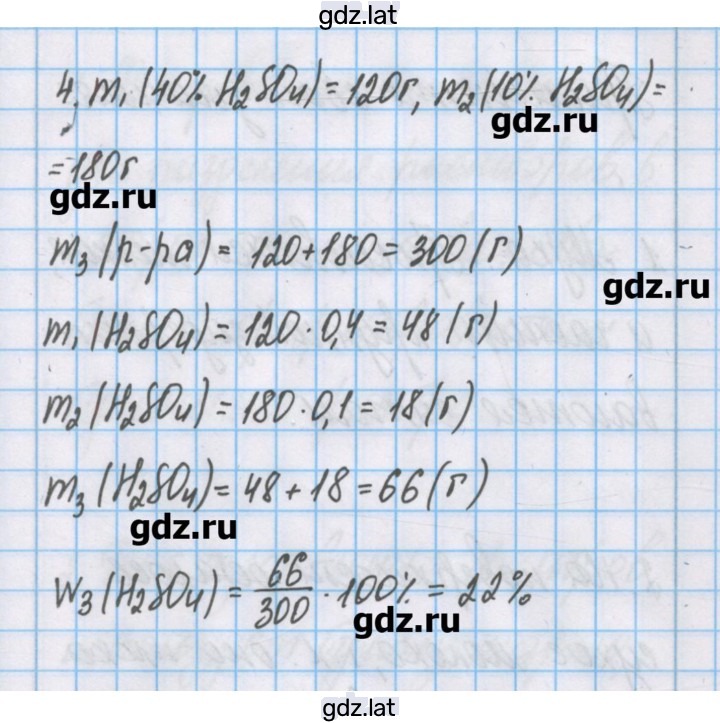 gdz.lat
4. m₁(40% H₂SO₄) = 120г, m₂(10% H₂SO₄) =
gdz.ru
= 180г
gdz.ru
m₃(р-ра) = 120 + 180 = 300(г)
gdz.ru
m₁(H₂SO₄) = 120 · 0,4 = 48(г)
m₂(H₂SO₄) = 180 · 0,1 = 18(г)
m₃(H₂SO₄) = 48 + 18 = 66(г)
gdz.ru
W₃(H₂SO₄) = 66/300 · 100% = 22%
gdz.ru
gdz.lat